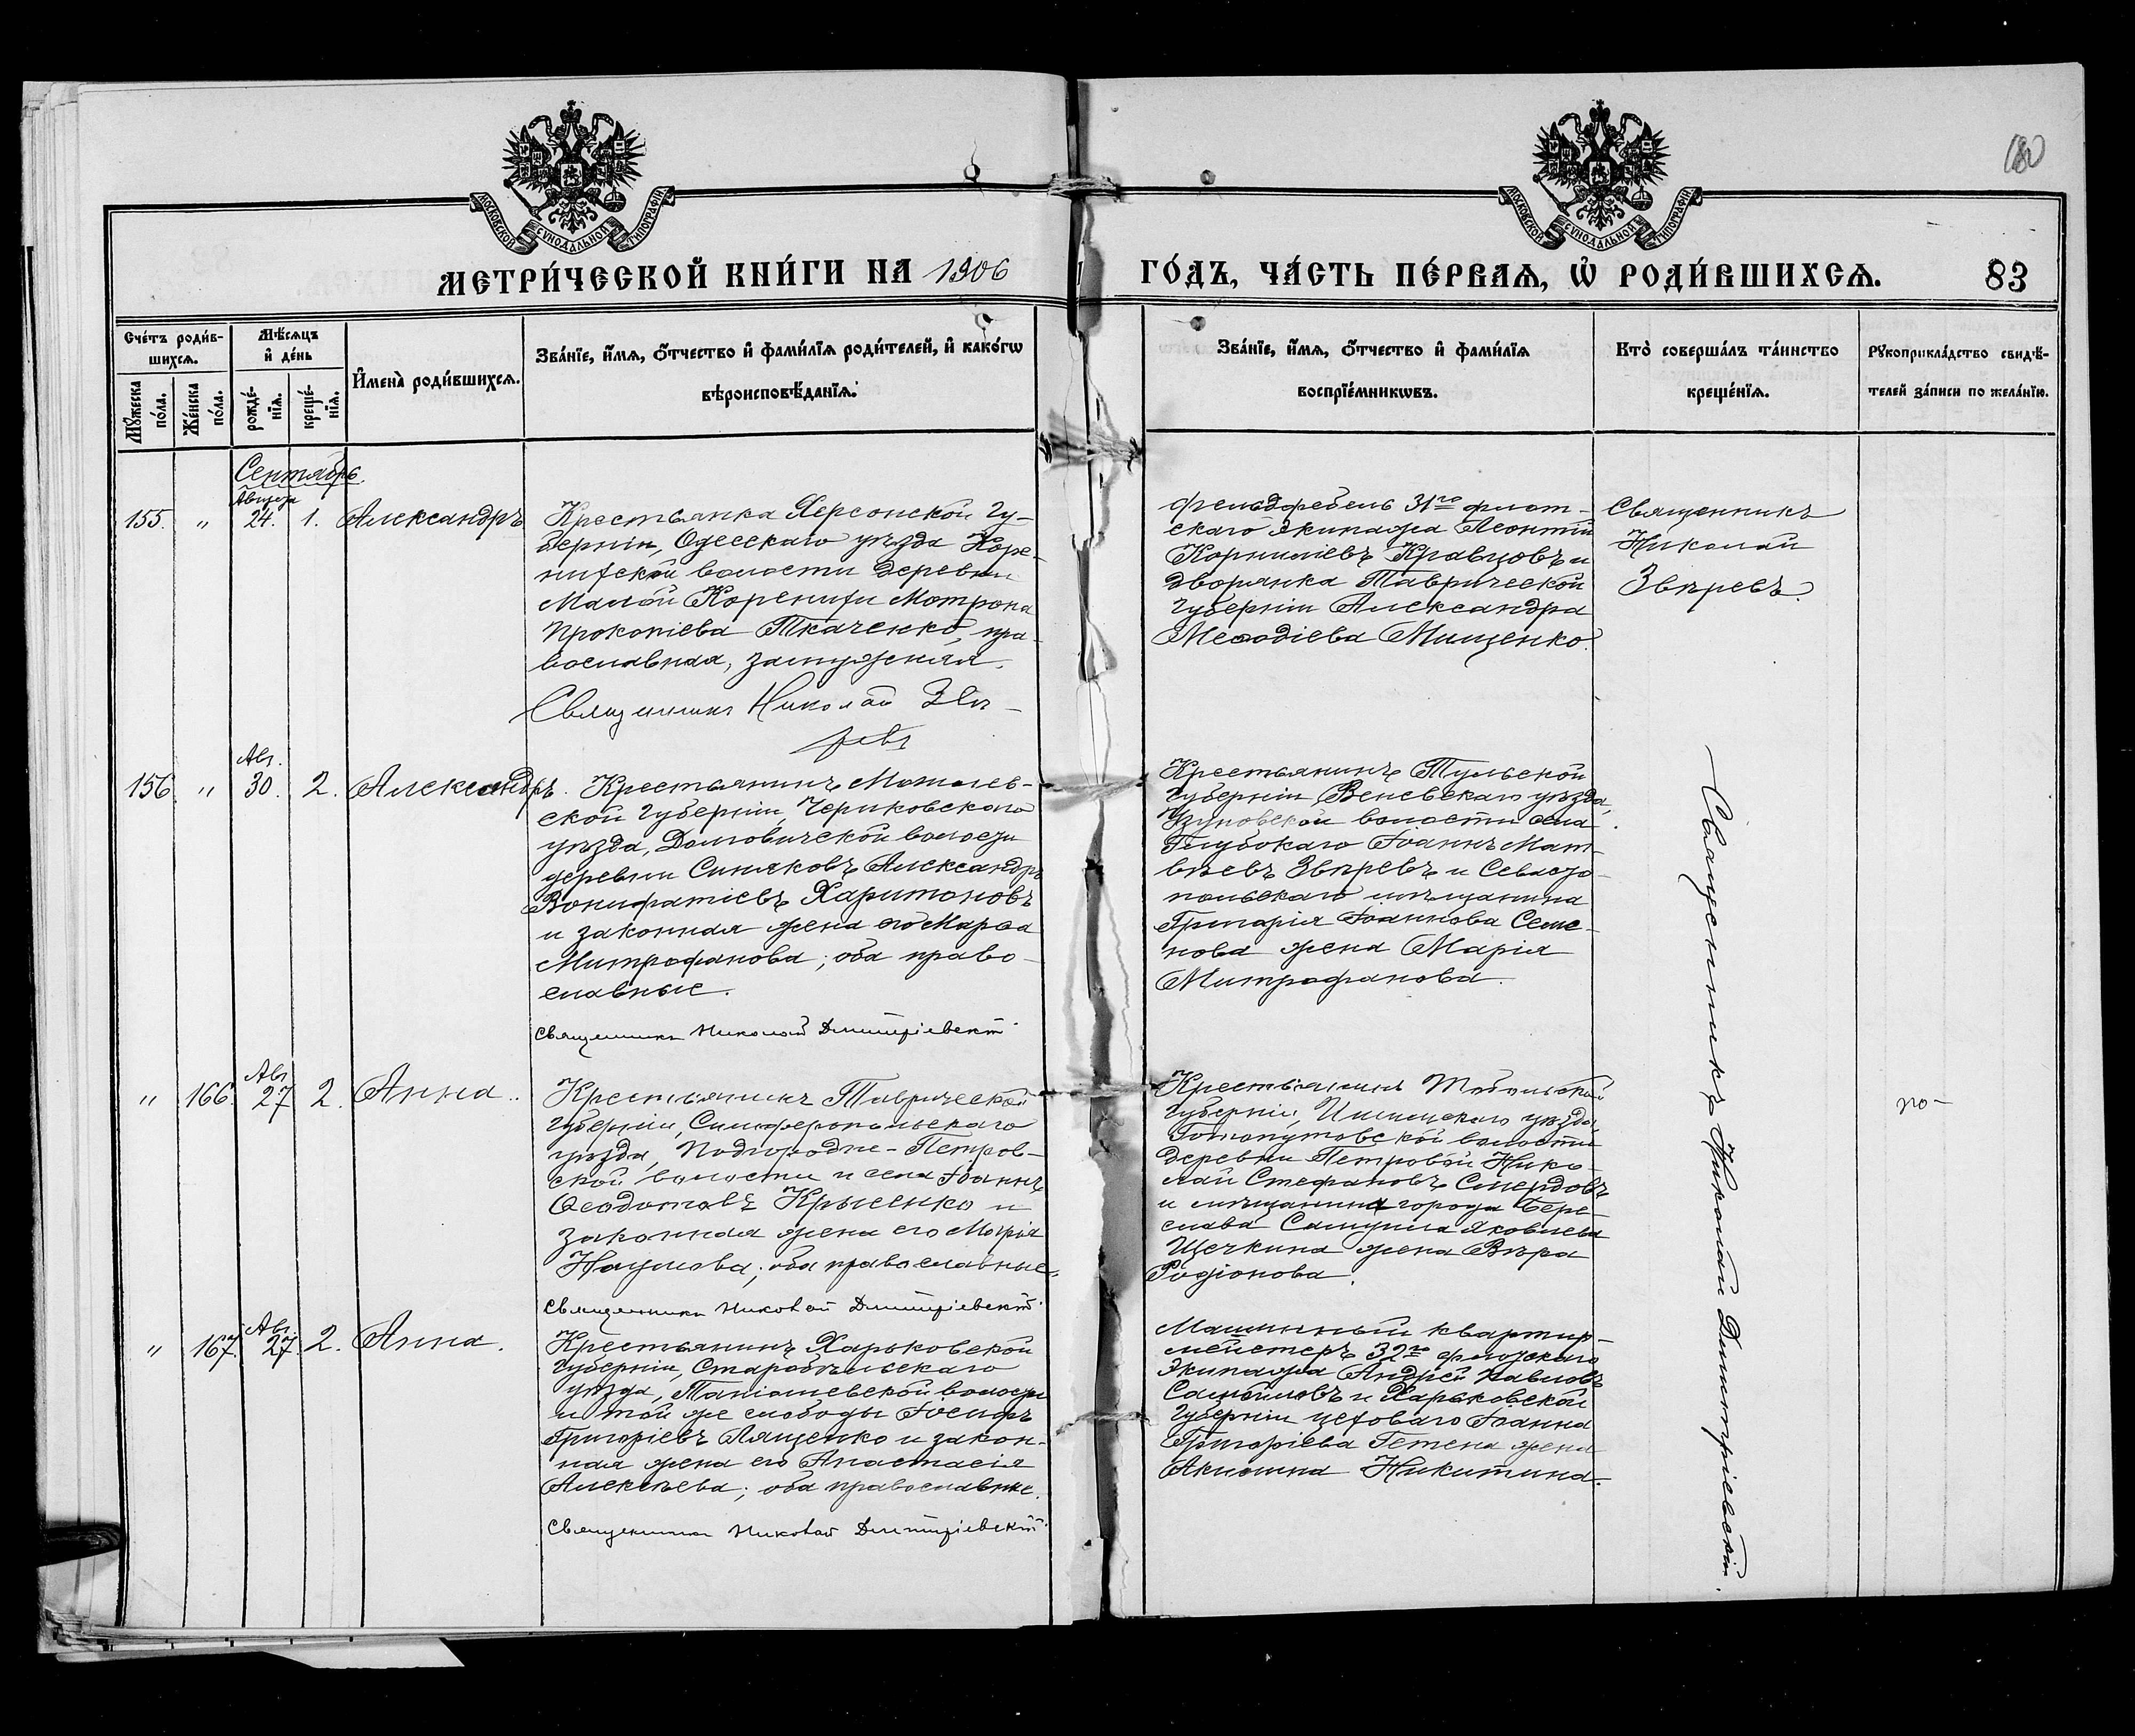 МОСКОВСКОЙ СУНОДАЛЬНОЙ ТИПОГРАФІИ
МОСКОВСКОЙ СУНОДАЛЬНОЙ ТИПОГРАФІИ
180
МЕТРИ́ЧЕСКОЙ КНИ́ГИ НА 1906
ГО́ДЪ, ЧА́СТЬ ПЕ́РВАѦ, Ѡ҆ РОДИ́ВШИХСѦ. 83
Сче́тъ роди́в-
шихсѧ.
Мꙋ́жеска по́ла.
Же́нска по́ла.
Мѣ́сѧцъ
и҆ де́нь
рожде́-
нїѧ.
креще́-
нїѧ.
И҆мена̀ роди́вшихсѧ.
Зва́нїе, и҆́мѧ, ѻ҆́тчество и҆ фами́лїѧ роди́телей, и҆ како́гѡ
вѣроисповѣ́данїѧ.
Зва́нїе, и҆́мѧ, ѻ҆́тчество и҆ фами́лїѧ
воспрїе́мникѡвъ.
Кто̀ соверша́лъ та́инство
креще́нїѧ.
Рꙋкоприкла́дство свидѣ́-
телей за́писи по жела́нїю.
Сентябрь.
Августа
155. " 24. 1. Александръ
Крестьянка Херсонской Гу-
берніи, Одесскаго уѣзда Коре-
нихской волости деревни
Малой Коренихи Мотрона
Прокопіева Ткаченко, пра-
вославная, замужняя.
Священникъ Николай Звѣ-
ревъ
фельдфебель 31го флот-
скаго экипажа Леонтій
Корниліевъ Кравцовъ и
дворянка Таврической
Губерніи Александра
Меѳодіева Мищенко.
Священникъ
Николай
Звѣревъ.
Авг.
156. " 30. 2. Александръ.
Крестьянинъ Могилев-
ской Губерніи, Чериковскаго
уѣзда, Долговичской волости
деревни Синяковъ Александръ
Вонифатіевъ Харитоновъ
и законная жена его Марѳа
Митрофанова; оба право-
славные.
Священникъ Николай Дмитріевскій.
Крестьянинъ Тульской
Губерніи, Веневскаго уѣзда,
Узуновской волости села
Глубокаго Іоаннъ Мат-
вѣевъ Звѣревъ и Севасто-
польскаго мѣщанина
Григорія Іоаннова Семе-
нова жена Марія
Митрофанова.
Священникъ Николай Дмитріевскій.
Авг.
" 166. 27 2. Анна.
Крестьянинъ Таврической
Губерніи, Симферопольскаго
уѣзда, Подгородне-Петров-
ской волости и села Іоаннъ
Ѳеодотовъ Крысенко и
законная жена его Марія
Наумова; оба православные.
Священникъ Николай Дмитріевскій.
Крестьянинъ Тобольской
Губерніи, Ишимскаго уѣзда,
Готопутовской волости
деревни Петровой Нико-
лай Стефановъ Смердовъ
и мѣщанина города Бере-
слава Самуила Яковлева
Щечкина жена Вѣра
Родіонова.
Авг.
" 167. 27. 2. Анна.
Крестьянинъ Харьковской
Губерніи, Старобѣльскаго
уѣзда, волости
и той же слободы Іосифъ
Григоріевъ Лященко и закон-
ная жена его Анастасія
Алексѣева; оба православные.
Священникъ Николай Дмитріевскій.
Машинный квартир-
мейстеръ 32го флотскаго
Экипажа Андрей Павловъ
Самойловъ и Харьковской
Губерніи цеховаго Іоанна
Григоріева жена
Акилина Никитина.